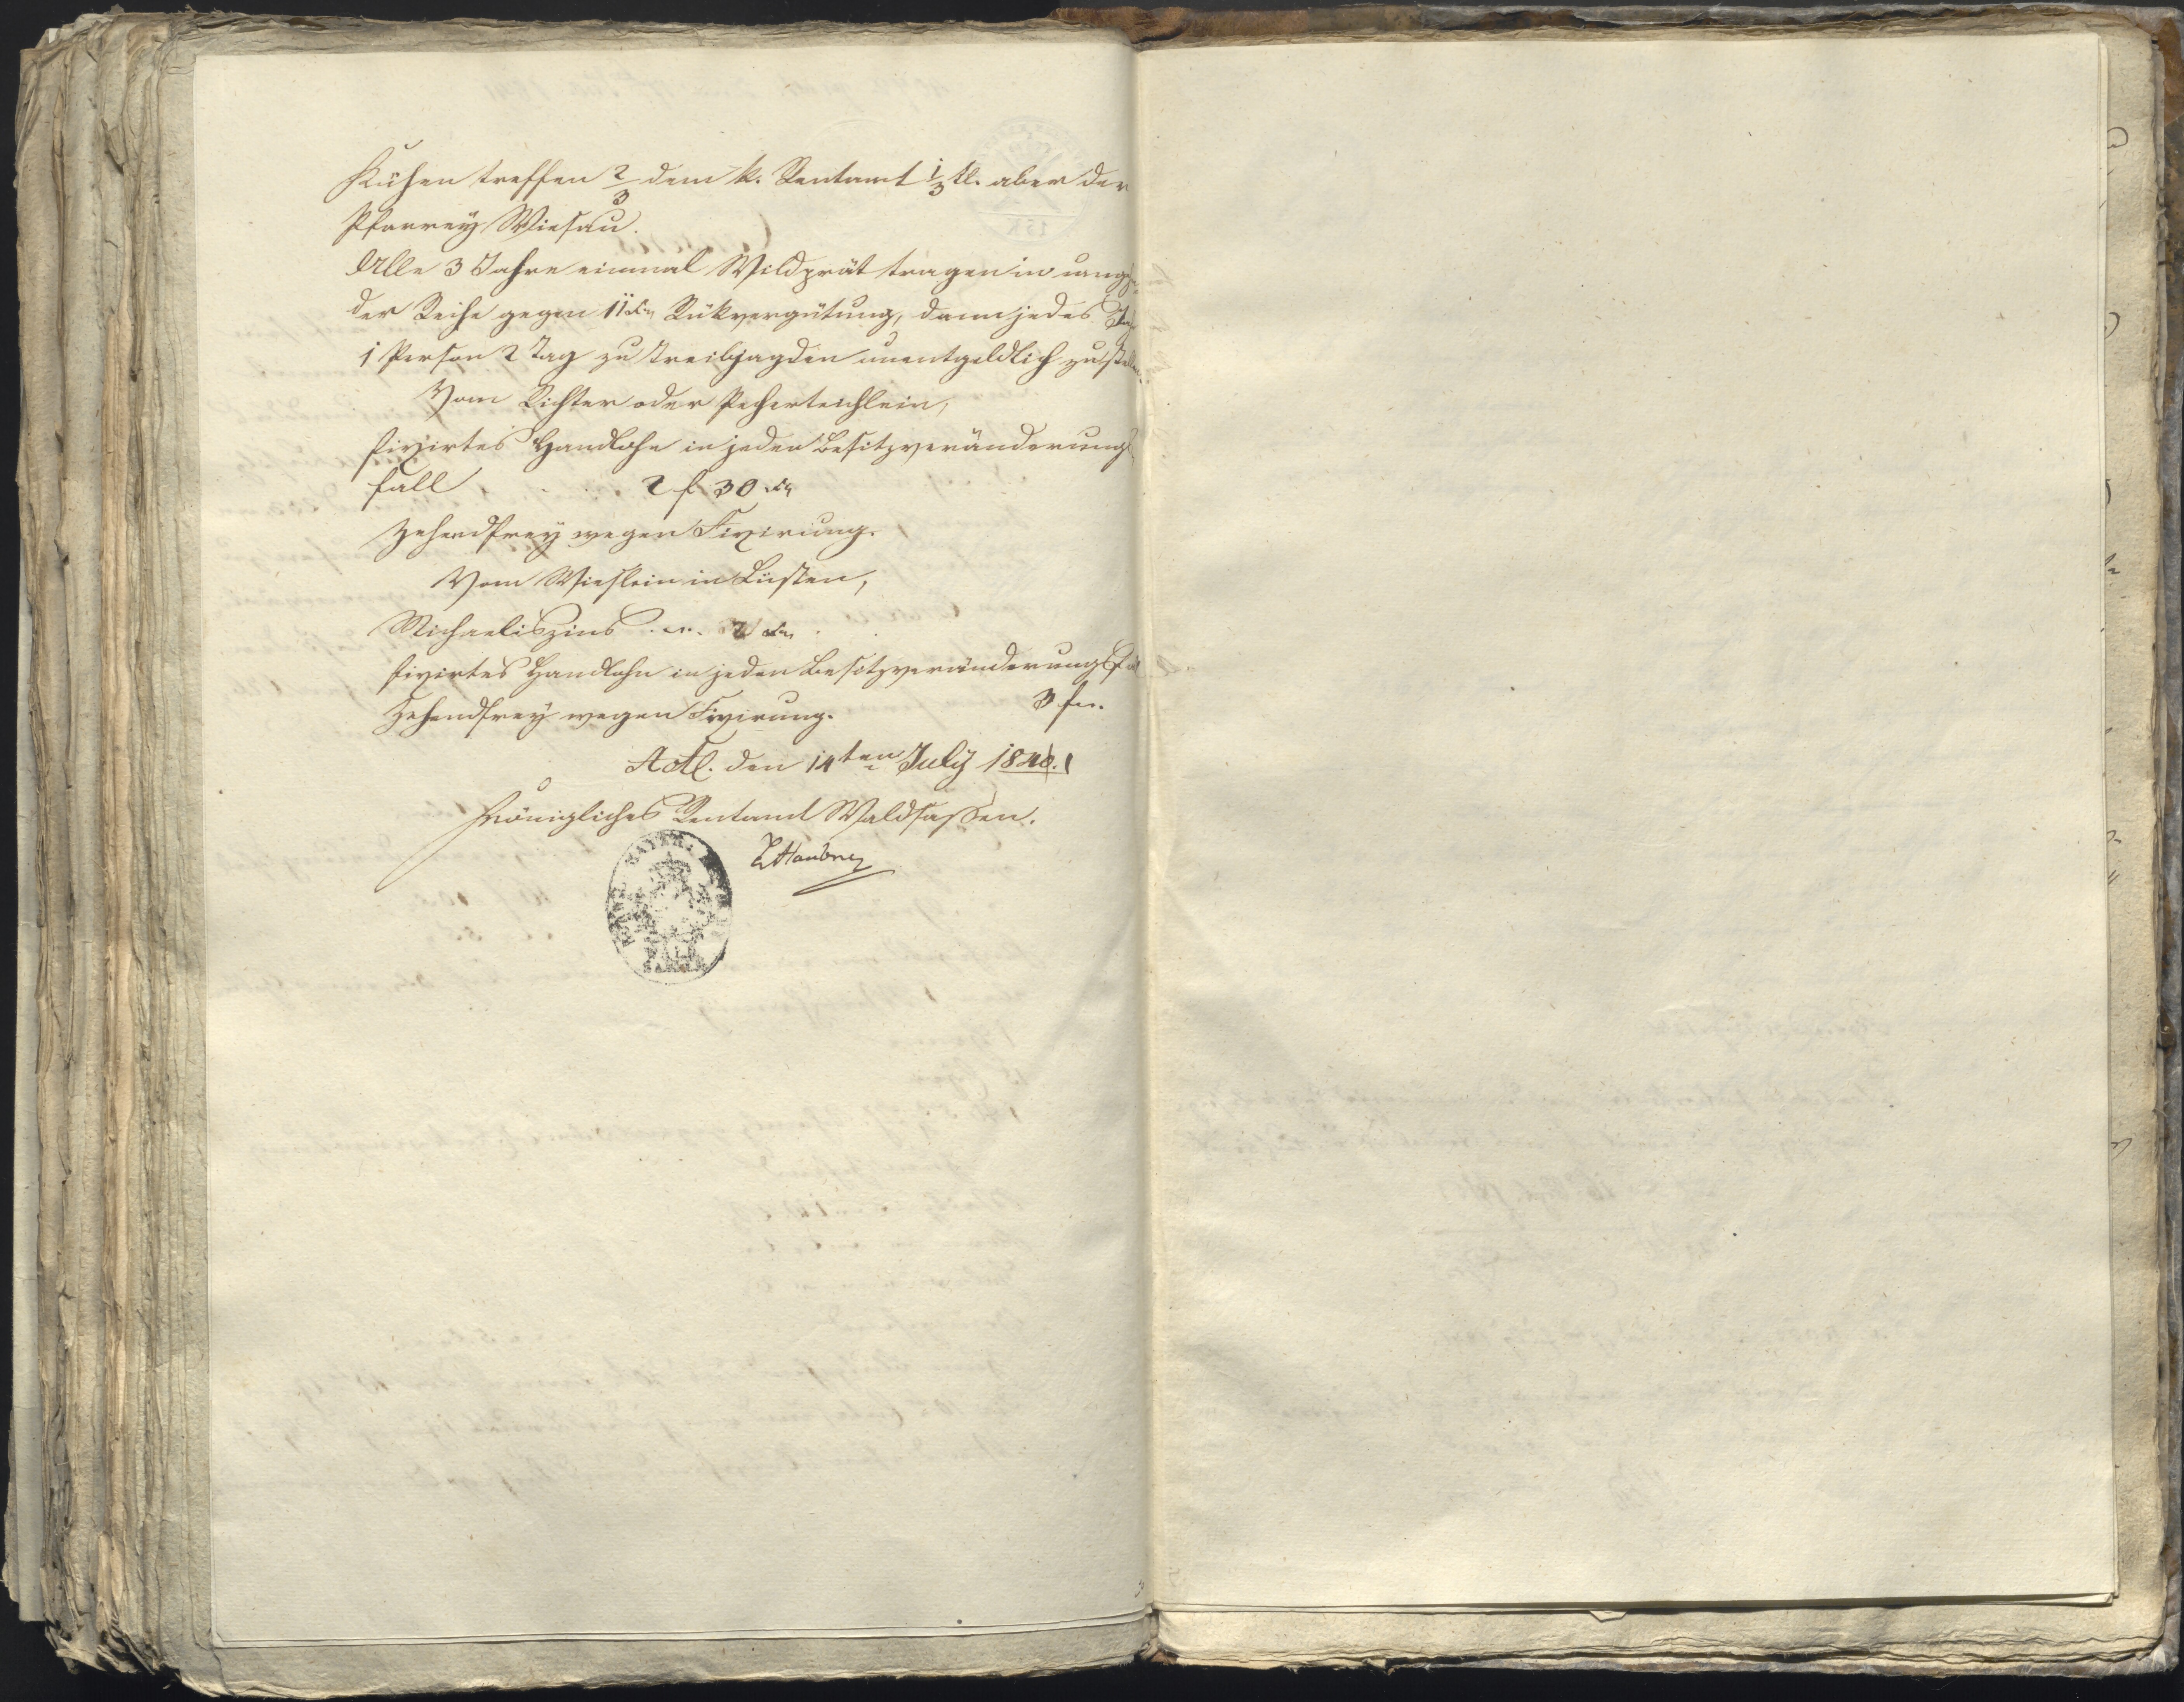 Kühen treffen 2/3 dem k. Rentamt 1/3 tl. aber der
Pfarrey Wiesau.
Alle 3 Jahre einmal Wildprät tragen in
der Reihe gegen 11 kr Rükvergütung, dann jedes
1 Person 2 Tag zu Treibjagden unentgeldlich zu stellen.
Vom Richter oder Pecherteichlein,
fixirtes Handlohn in jeden Besitzveränderungs
fall 2 f. 30 kr
Zehendfrey wegen Fixirung.
Vom Wieslein in Lüsten,
Michaeliszins kr
fixirtes Handlohn in jeden Besitzveränderungsfall
Zehendfrey wegen Fixirung. 3 f
Act. den 14ten July 1841
Königliches Rentamt Waldsaßen.